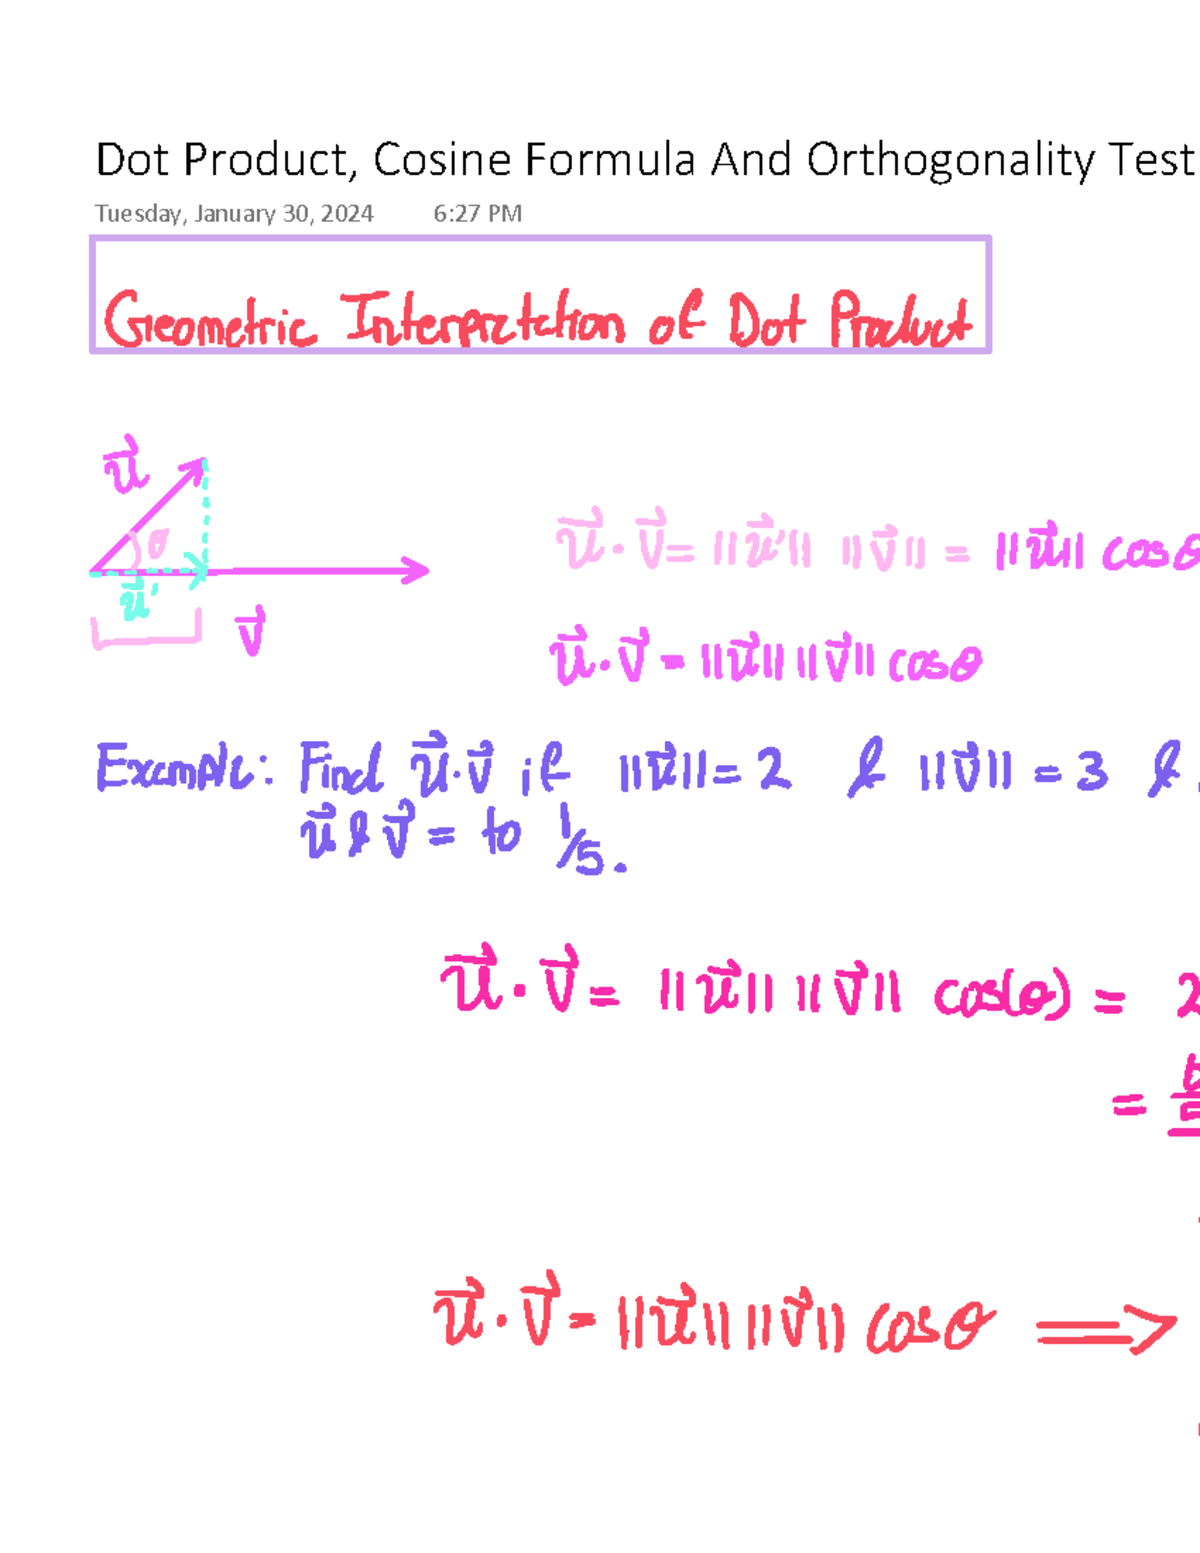 Dot Product, Cosine Formula And Orthogonality Test
Tuesday, January 30, 2024 6:27 PM
Geometric Interpretation of Dot Product
u⃗
θ
u⃗'
v⃗
u⃗ · v⃗ = ||u⃗'|| ||v⃗|| = ||u⃗|| cosθ
u⃗ · v⃗ = ||u⃗|| ||v⃗|| cosθ
Example: Find u⃗ · v⃗ if ||u⃗|| = 2 & ||v⃗|| = 3 &
u⃗ & v⃗ = to 1/5.
u⃗ · v⃗ = ||u⃗|| ||v⃗|| cos(θ) = 2
=
u⃗ · v⃗ = ||u⃗|| ||v⃗|| cosθ ⟹